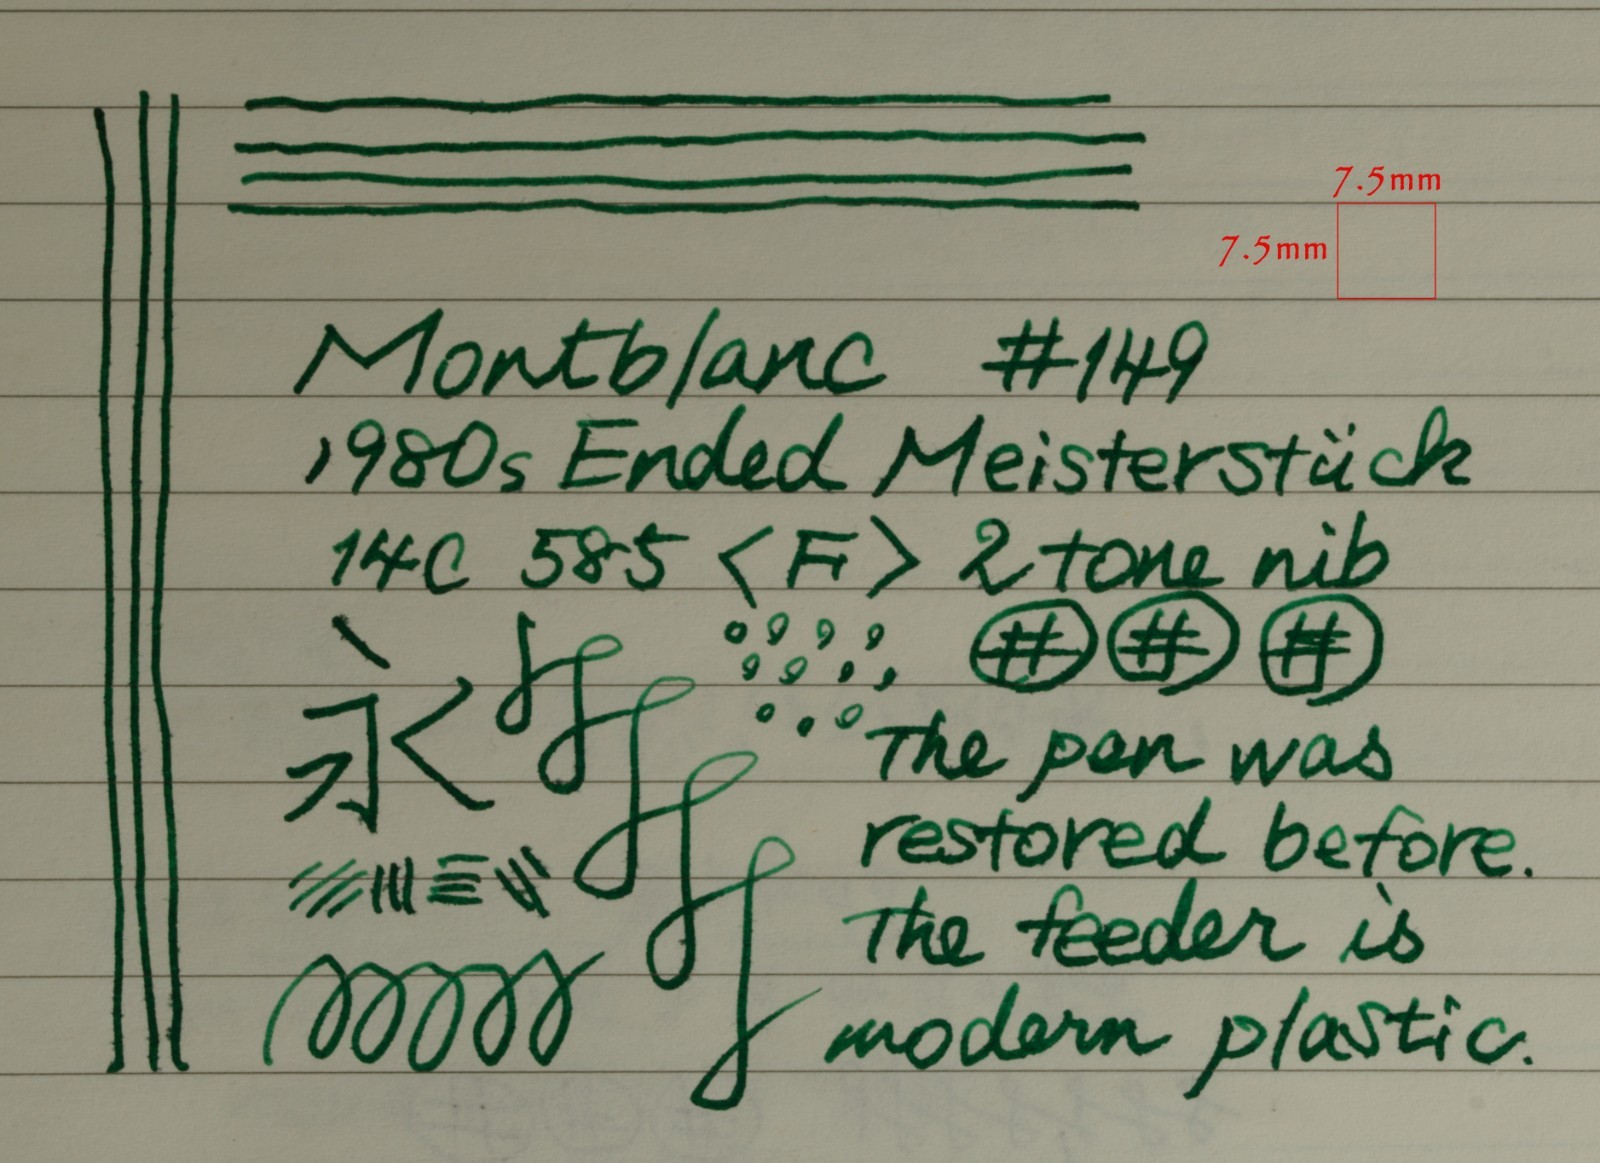 7.5mm
7.5mm
Montblanc #149
1980s Ended Meisterstück
14C 585 <F> 2 tone nib
# # #
永
The pen was
restored before.
The feeder is
modern plastic.